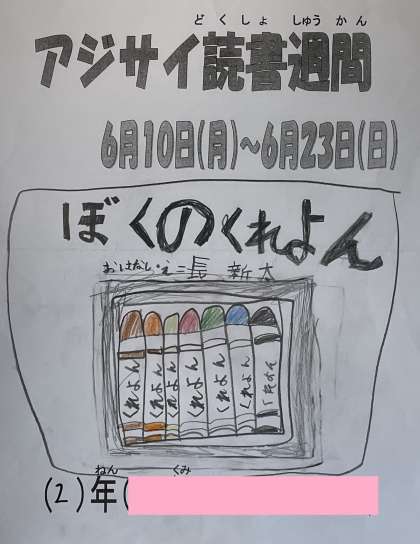 どくしょ しゅうかん
アジサイ読書週間
6月10日(月)~6月23日(日)
ぼくのくれよん
おはなし・え=長 新太
くれよん くれよん くれよん くれよん くれよん くれよん くれよん
ねん くみ
(2)年(